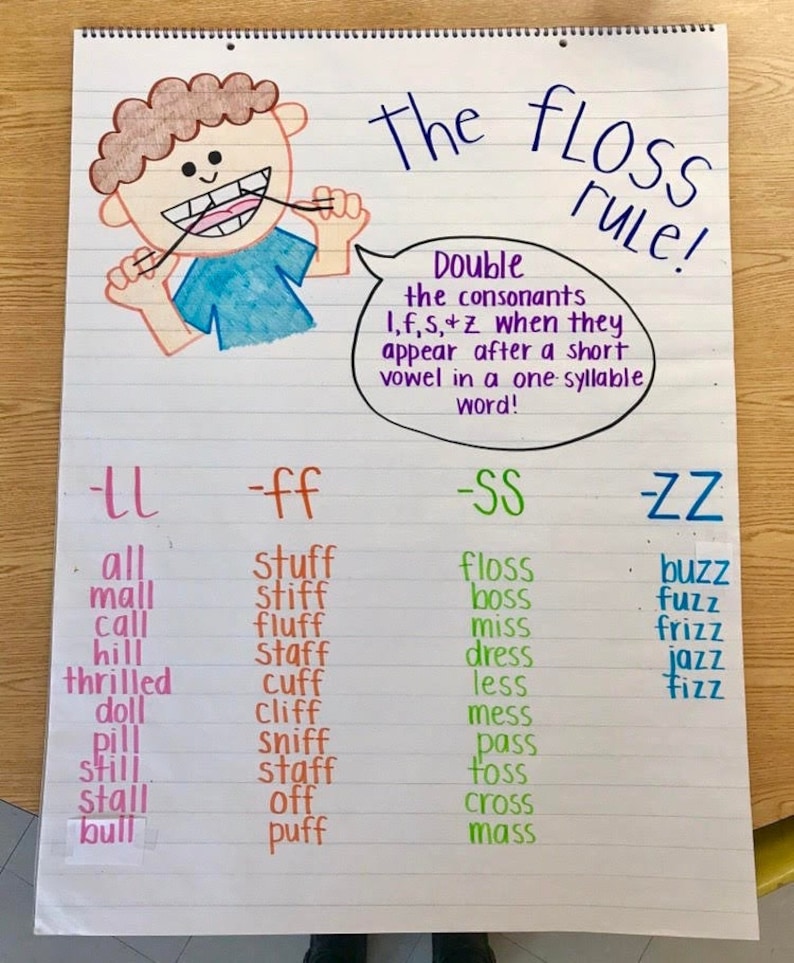 The fLOSS
rule!
Double
the consonants
l,f,s,+z when they
appear after a short
vowel in a one-syllable
word!
-LL
all
mall
call
hill
thrilled
doll
pill
still
stall
bull
-ff
stuff
stiff
fluff
staff
cuff
cliff
sniff
staff
off
puff
-SS
floss
boss
miss
dress
less
mess
pass
toss
cross
mass
-ZZ
buzz
fuzz
frizz
jazz
fizz